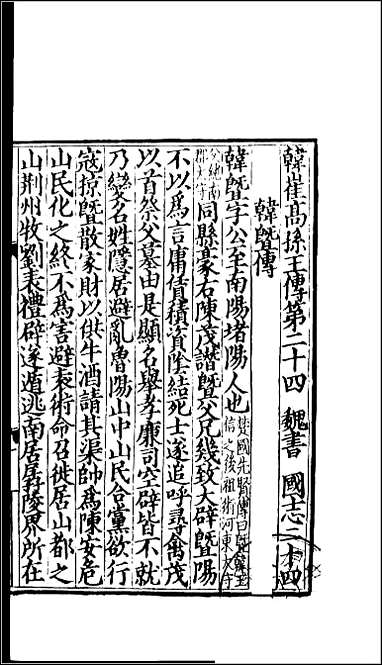 韓崔高孫王傳第二十四　魏書　國志二十四
韓暨傳
韓暨字公至南陽堵陽人也楚國先賢傳曰暨韓王
信之後祖術河東太守
父純南
郡太守同縣豪右陳茂譖暨父兄幾致大辟暨陽
不以爲言庸賃積資陰結死士遂追呼尋禽茂
以首祭父墓由是顯名舉孝廉司空辟皆不就
乃變名姓隱居避亂魯陽山中山民合黨欲行
寇掠暨散家財以供牛酒請其渠帥爲陳安危
山民化之終不爲害避袁術命召徙居山都之
山荆州牧劉表禮辟遂遁逃南居孱陵界所在